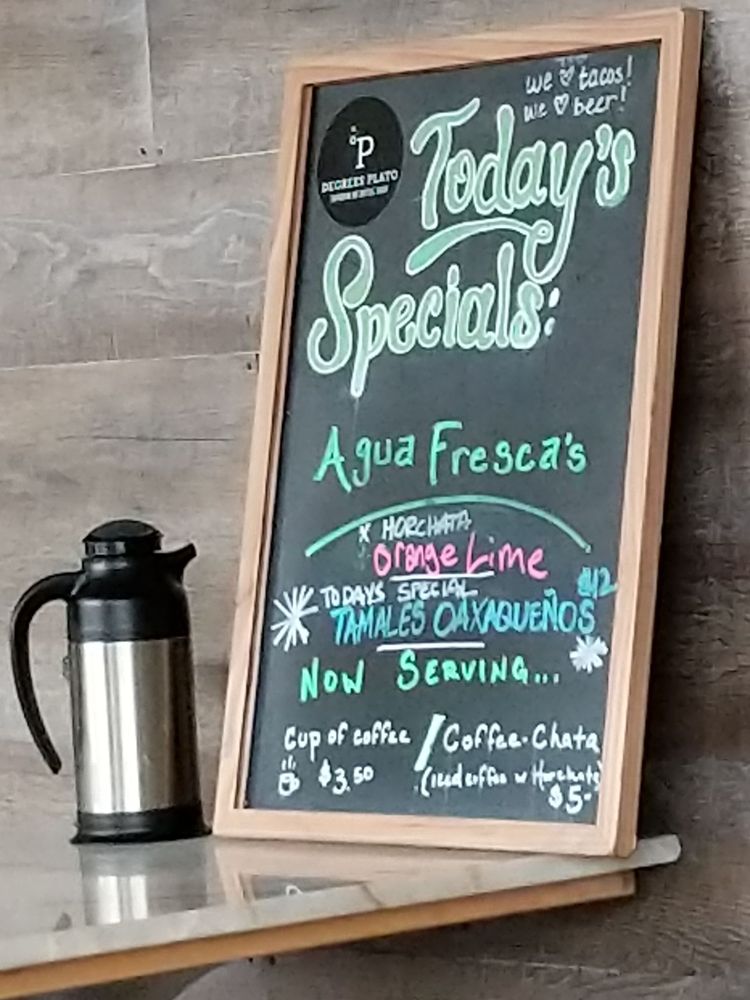 we ♡ tacos!
we ♡ beer!
°P
DEGREES PLATO
Today's
Specials:
Agua Fresca's
x HORCHATA
Orange Lime
TODAYS SPECIAL
$12
TAMALES OAXAQUEÑOS
NOW SERVING...
Cup of coffee / Coffee-Chata
$3.50 (Iced coffee w Horchata)
$5-